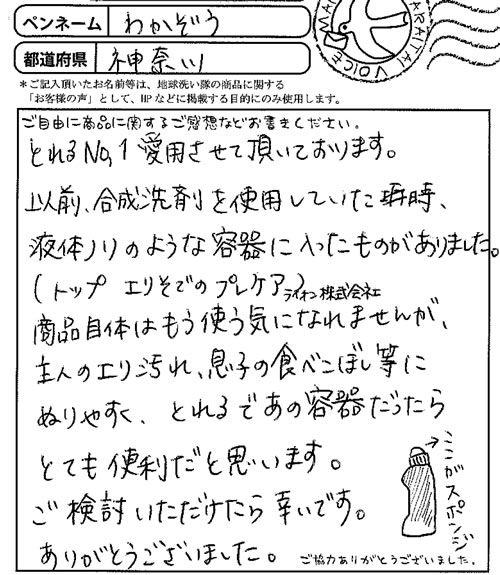 ペンネーム わかぞう
都道府県 神奈川
*ご記入頂いたお名前等は、地球洗い隊の商品に関する
「お客様の声」として、HPなどに掲載する目的にのみ使用します。
ご自由に商品に関するご感想などお書きください。
とれるNo,1愛用させて頂いております。
以前、合成洗剤を使用していた時、
液体ノリのような容器に入ったものがありました。
(トップ エリそでのプレケア)ライオン株式会社
商品自体はもう使う気になれませんが、
主人のエリ汚れ、息子の食べこぼし等に
ぬりやすく、とれるであの容器だったら
とても便利だと思います。
ご検討いただけたら幸いです。
ありがとうございました。
ここがスポンジ
ご協力ありがとうございました。
VOICE